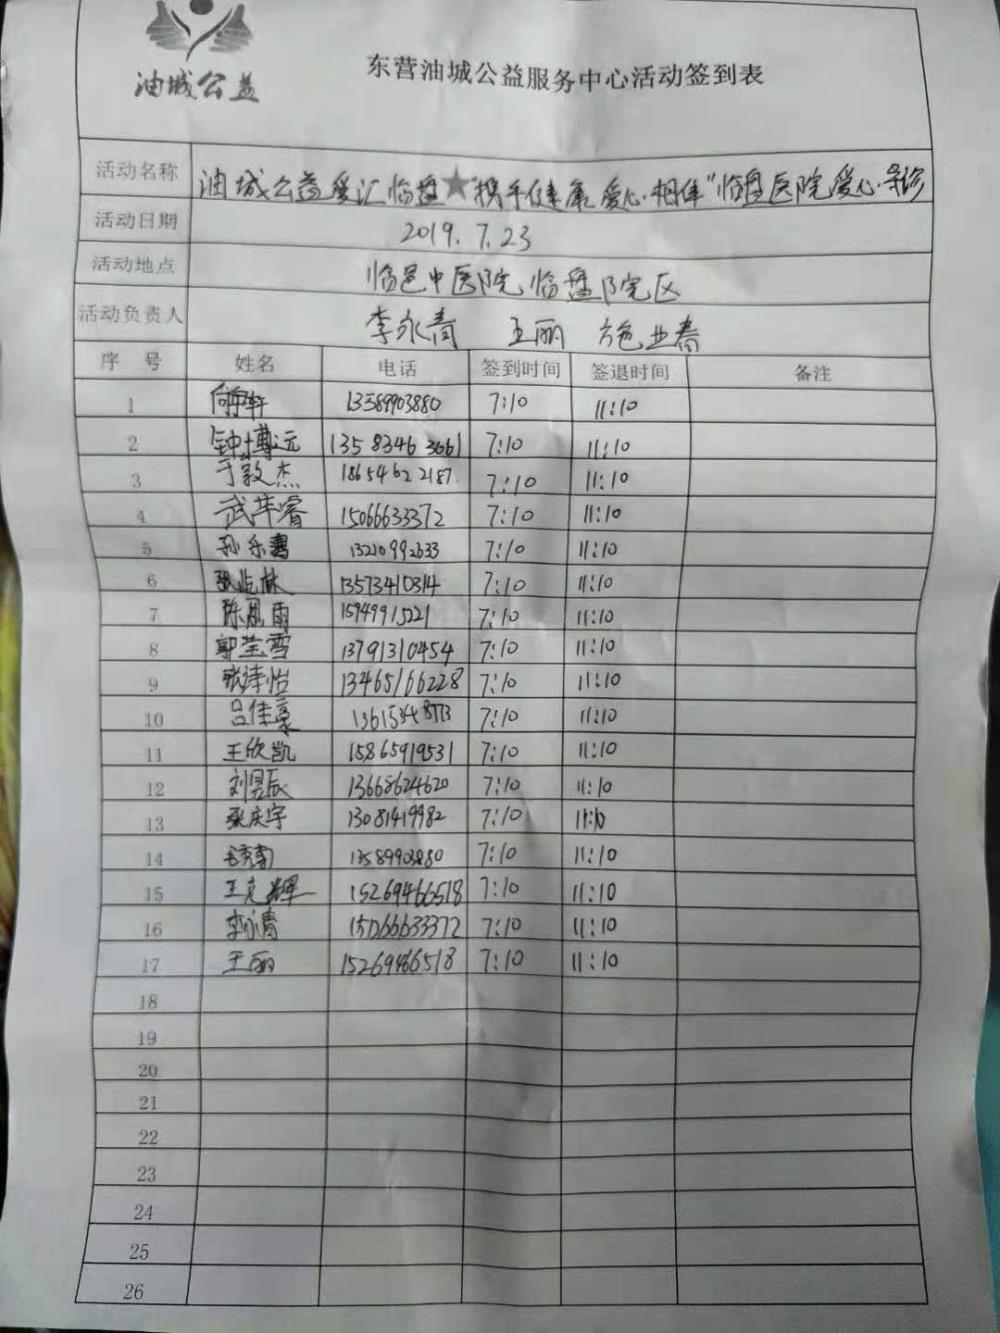 油城公益
东营油城公益服务中心活动签到表
活动名称 油城公益爱汇临盘★"携手健康 爱心相伴"临盘医院爱心导诊
活动日期 2019.7.23
活动地点 临邑中医院临盘院区
活动负责人 李永青 王丽
序号 姓名 电话 签到时间 签退时间 备注
1 13589903880 7:10 11:10
2 钟博远 13583463661 7:10 11:10
3 于毅杰 18654622187 7:10 11:10
4 武华睿 15066633372 7:10 11:10
5 孙乐 13210992633 7:10 11:10
6 张屹林 13573410314 7:10 11:10
7 陈凤雨 15949915221 7:10 11:10
8 郭莹雪 13791310454 7:10 11:10
9 张津怡 13465166228 7:10 11:10
10 吕佳豪 7:10 11:10
11 王欣凯 15865919531 7:10 11:10
12 刘昱辰 13668624620 7:10 11:10
13 张庆宇 13081419982 7:10 11:10
14 7:10 11:10
15 王克辉 15269466518 7:10 11:10
16 李永青 15066633372 7:10 11:10
17 王丽 15269466518 7:10 11:10
18
19
20
21
22
23
24
25
26